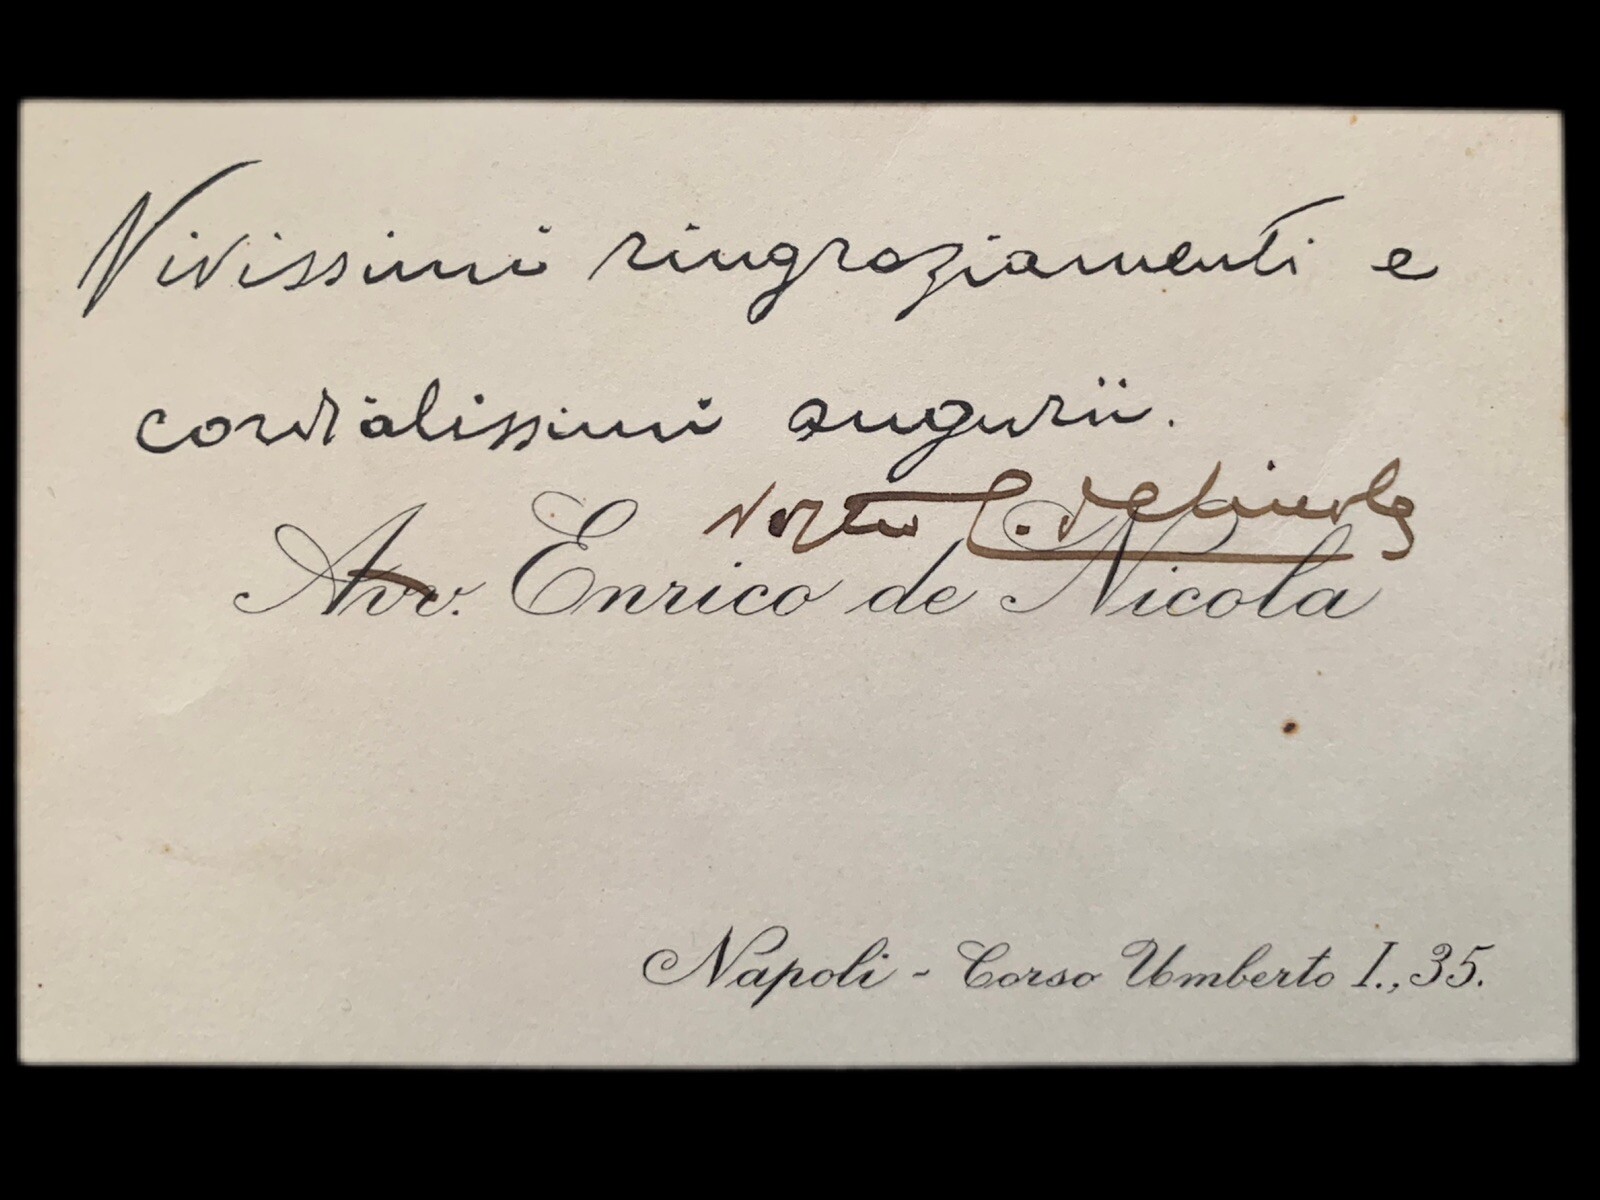 Vivissimi ringraziamenti e
cordialissimi augurii.
E. de Nicola
Avv. Enrico de Nicola
Napoli - Corso Umberto I., 35.